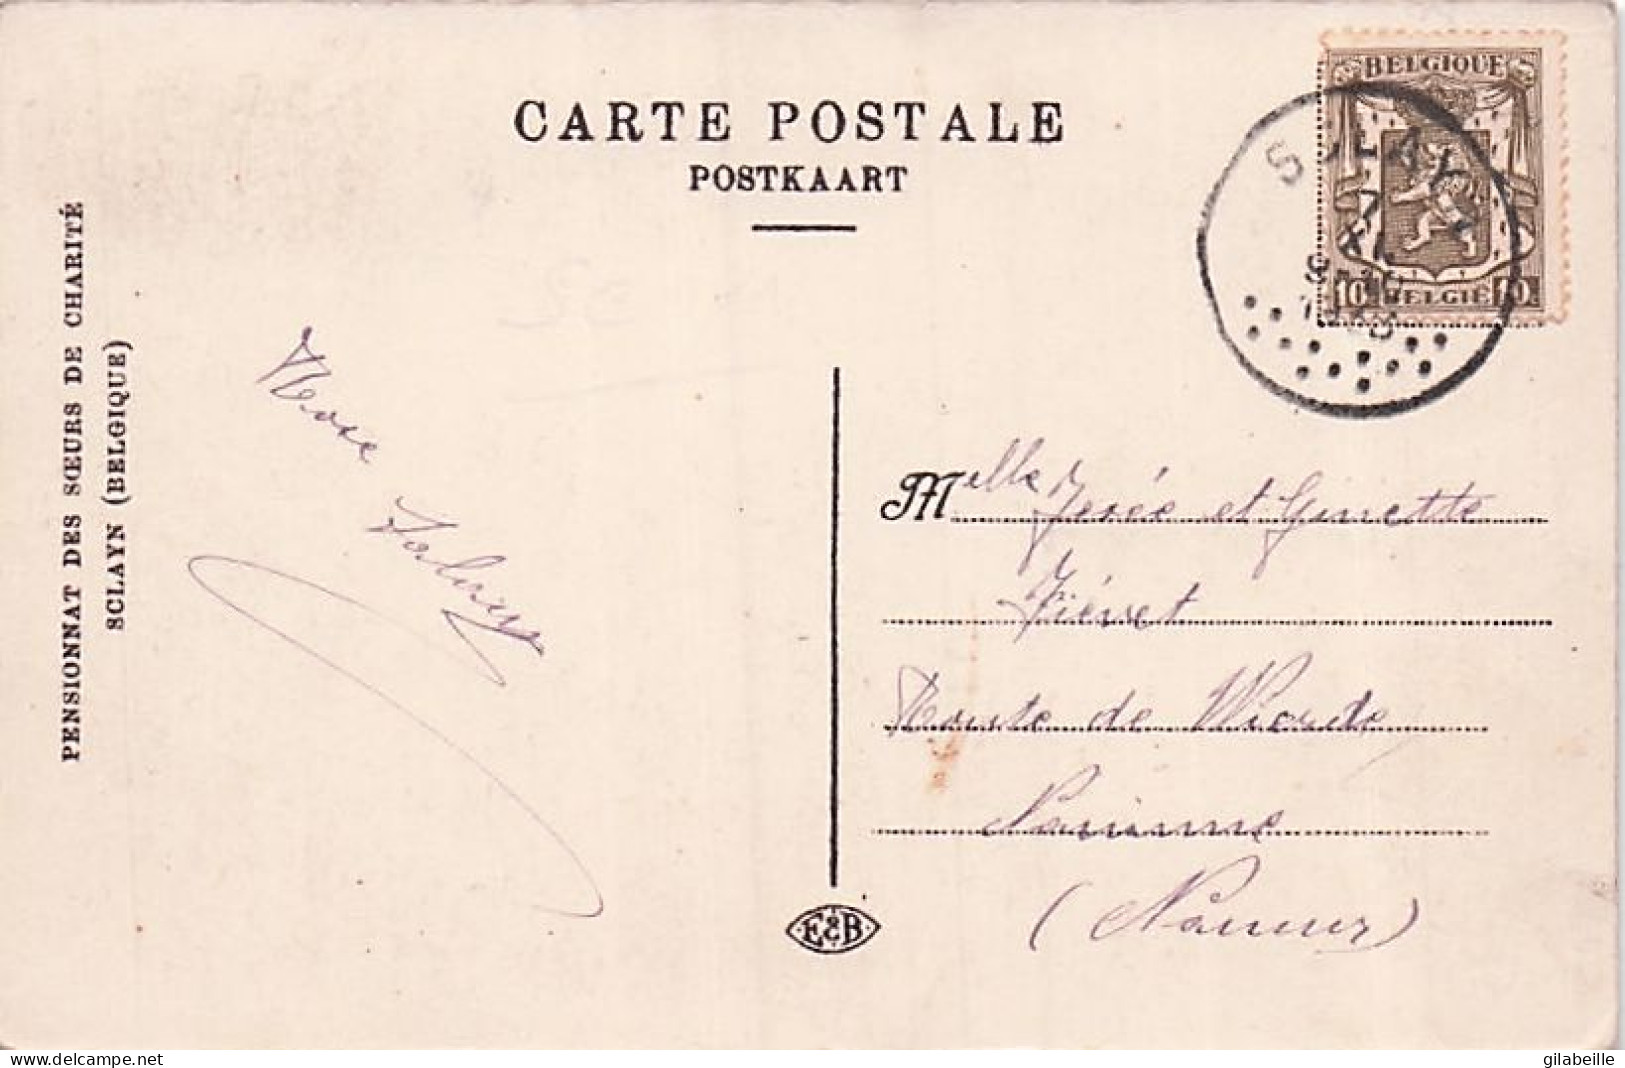 CARTE POSTALE
POSTKAART
PENSIONNAT DES SŒURS DE CHARITÉ
SCLAYN (BELGIQUE)
BELGIQUE
10 BELGIË 10
SCLAYN
7
XI
Melle et Ginette
Fiévet
Route de Wierde
Naninne
(Namur)
E&B
www.delcampe.net
gilabeille